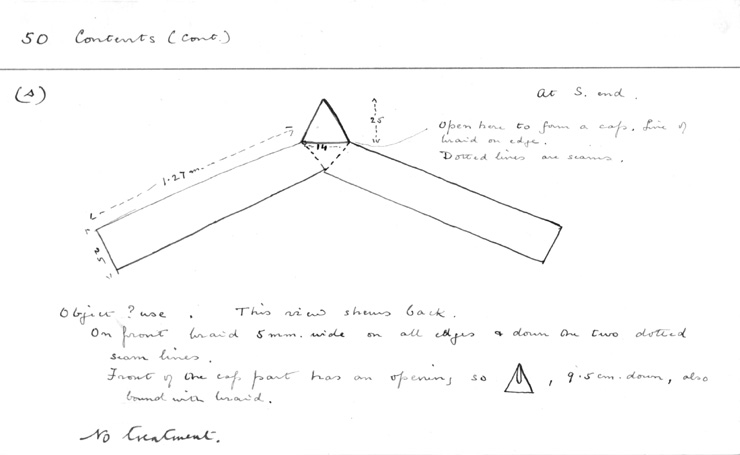 50 Contents (Cont.)
(s)
At S. end.
Open here to form a cap. Line of
braid on edge.
Dotted lines are seams.
25
14
1.27 m.
Object ? use. This view shews back.
On front braid 5mm. wide on all edges & down the two dotted
seam lines.
Front of the cap part has an opening so , 9.5cm. down, also
bound with braid.
No treatment.